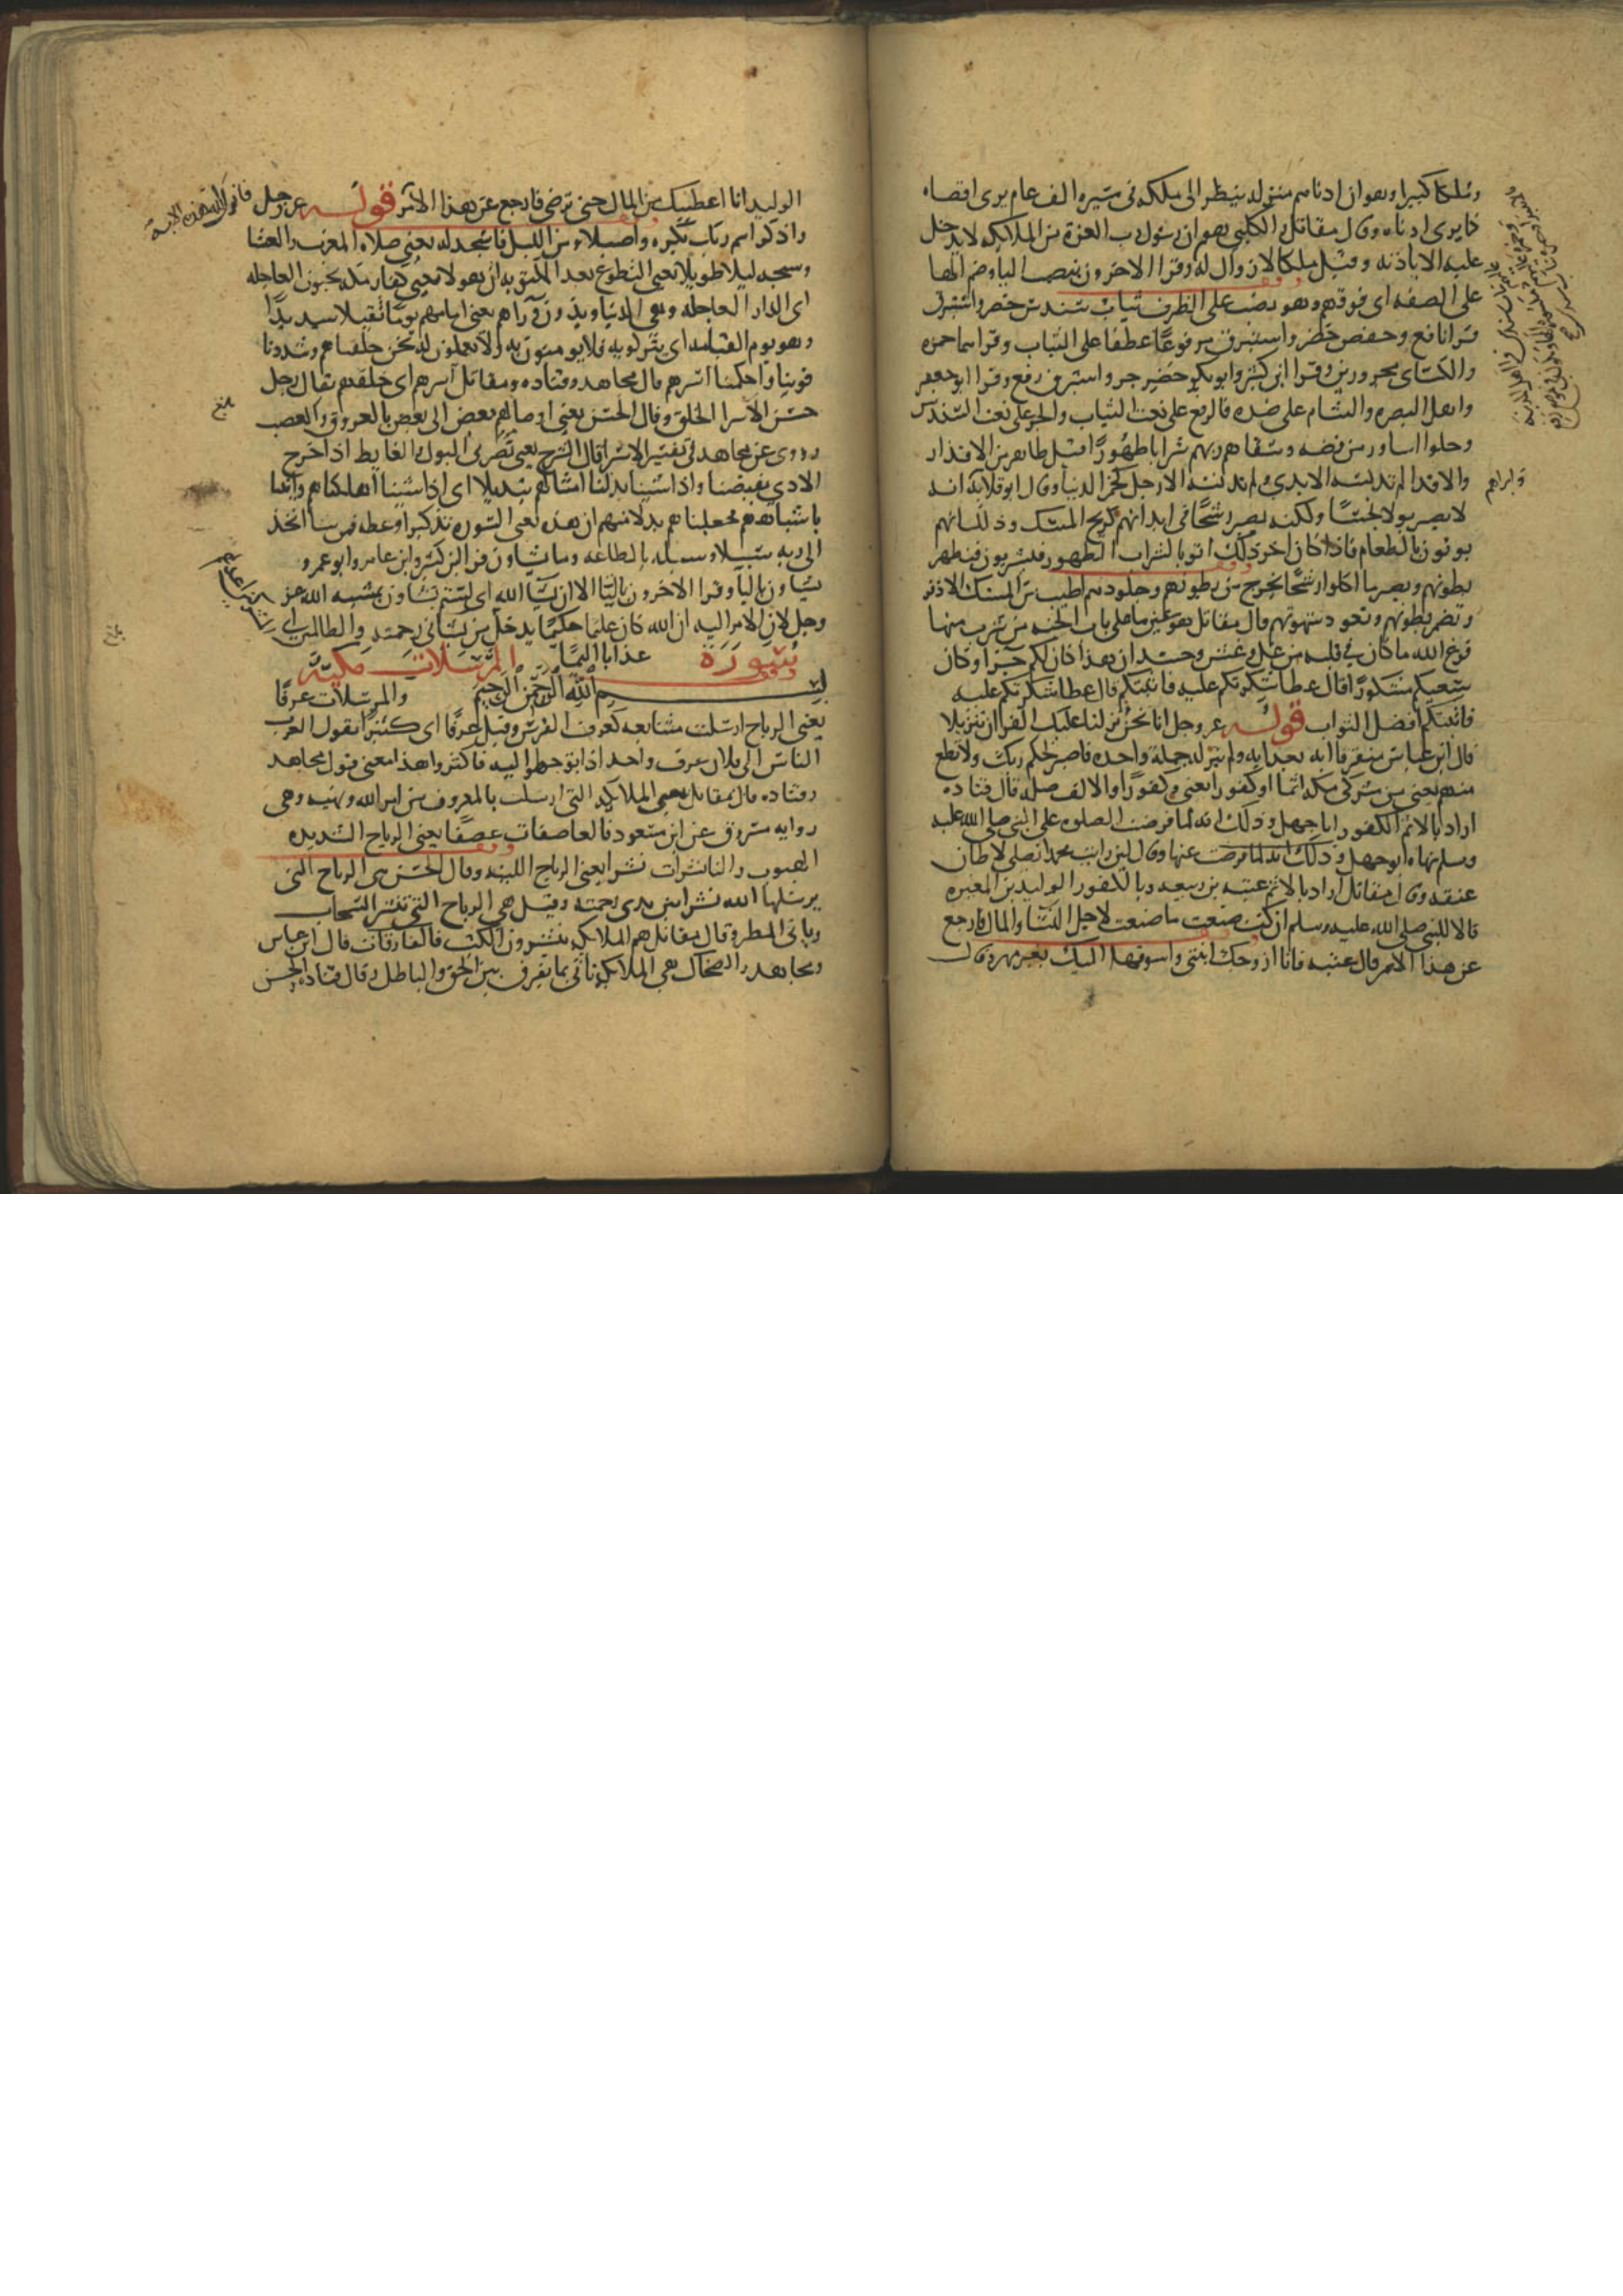 وملكا كبيرا وهو ان ادناهم منزله ينظر الى ملكه في مسيره الف عام يرى اقصاه
كما يرى ادناه وقال مقاتل والكلبي هو ان رسول رب العزة من الملايكه لا يدخل
عليه الا باذنه وقيل ملكا لا زوال له وقرا الاخرون بنصب اليا وضم الها
على الصفه اى فوقهم وهو نصب على الظرف ثياب سندس خضر واستبرق
قرا نافع وحفص خضر واستبرق مرفوعا عطفا على الثياب وقراهما حمزه
والكساى مجرورين وقرا ابن كثير وابو بكر خضر جر واستبرق رفع وقرا ابو جعفر
واهل البصره والشام على ضده فالرفع على نعت الثياب والجر على نعت السندس
وحلوا اساور من فضه وسقاهم ربهم شرابا طهورا قيل طاهر من الاقذار
والاقذا لم تدنسه الايدى ولم تدنسه الارجل كخمر الدنيا وقال ابو قلابه انه
لا يصير بولا نجسا ولكنه يصير رشحا في ابدانهم كريح المسك وذلك انهم
يوتون بالطعام فاذا كان اخر ذلك اتوا بالشراب الطهور فيشربون فيطهر
بطونهم ويصير ما اكلوا رشحا يخرج من بطونهم وجلودهم اطيب من المسك الاذفر
وتضمر بطونهم وتعود شهوتهم قال مقاتل هو عين ما على باب الجنه من شرب منها
نزع الله ما كان في قلبه من غل وغش وحسد ان هذا كان لكم جزا وكان
سعيكم مشكورا قال عطا شكرتكم عليه فاثبتكم قال عطا شكرتكم عليه
فاثبتكم افضل الثواب قوله عز وجل انا نحن نزلنا عليك القران تنزيلا
قال ابن عباس متفرقا ايه بعد ايه ولم ينزله جملة واحده فاصبر لحكم ربك ولا تطع
منهم يعني من مشركى مكه اثما او كفورا يعني وكفورا والالف صله قال قتاده
اراد بالاثم الكفور ابا جهل وذلك انه لما فرضت الصلوه على النبي صلى الله عليه
وسلم نهاه ابو جهل وذلك انه لما فرضت عنها وقال لين رايت محمدا يصلي لاطان
عنقه وقال مقاتل اراد بالاثم عتبه بن ربيعه وبالكفور الوليد بن المغيره
قالا للنبي صلى الله عليه وسلم ان كنت صنعت ما صنعت لاجل النسا والمال فارجع
عن هذا الامر قال عتبه فانا ازوجك ابنتي واسوقها اليك بغير مهر وقال
الوليد انا اعطيك من المال حتى ترضى فارجع عن هذا الامر قوله عز وجل
واذكر اسم ربك بكره واصيلا ومن الليل فاسجد له يعني صلاه المغرب والعشا
وسبحه ليلا طويلا يعنى التطوع بعد المكتوبه ان هولا يعني كفار مكه يحبون العاجله
اى الدار العاجله وهى الدنيا ويذرون وراهم يعني امامهم يوما ثقيلا شديدا
وهو يوم القيامه اى يتركونه فلا يومنون به ولا يعملون له نحن خلقناهم وشددنا
قوينا واحكمنا اسرهم قال مجاهد وقتاده ومقاتل اسرهم اى خلقهم يقال رجل
حسن الاسر اى الخلق وقال الحسن يعني اوصالهم بعض الى بعض بالعروق والعصب
وروى عن مجاهد في تفسير الاسر قال الشرج يعني مصرتى البول والغايط اذا خرج
الاذى تقبضتا واذا شينا بدلنا امثالهم تبديلا اى اذا شينا اهلكناهم واتينا
باشباههم فجعلناهم بدلا منهم ان هذه يعني السوره تذكره وعظه فمن شا اتخذ
الى ربه سبيلا وسيله بالطاعه وما تشاون قرا ابن كثير وابن عامر وابو عمرو
يشاون باليا وقرا الاخرون بالتا الا ان يشا الله اى لستم تشاون الا بمشيه الله عز
وجل لان الامر اليه ان الله كان عليما حكيما يدخل من يشا في رحمته والظالمين
عذابا اليما
سورة المرسلات مكية
بسم الله الرحمن الرحيم والمرسلات عرفا
يعني الرياح ارسلت متتابعه كعرف الفرس وقيل عرفا اى كثيرا تقول العرب
الناس الى فلان عرف واحد اذا توجهوا اليه فاكثروا هذا معنى قول مجاهد
وقتاده قال مقاتل يعني الملايكه التى ارسلت بالمعروف من امر الله ونهيه وهى
روايه مسروق عن ابن مسعود فالعاصفات عصفا يعني الرياح الشديده
الهبوب والناشرات نشرا يعني الرياح اللينه وقال الحسن هى الرياح التى
يرسلها الله نشرا بين يدى رحمته وقيل هى الرياح التى تنشر السحاب
وياتى المطر وقال مقاتل هم الملايكه ينشرون الكتب فالفارقات قال ابن عباس
ومجاهد والضحاك هى الملايكه تاتى بما يفرق بين الحق والباطل وقال قتاده والحسن
بلغ